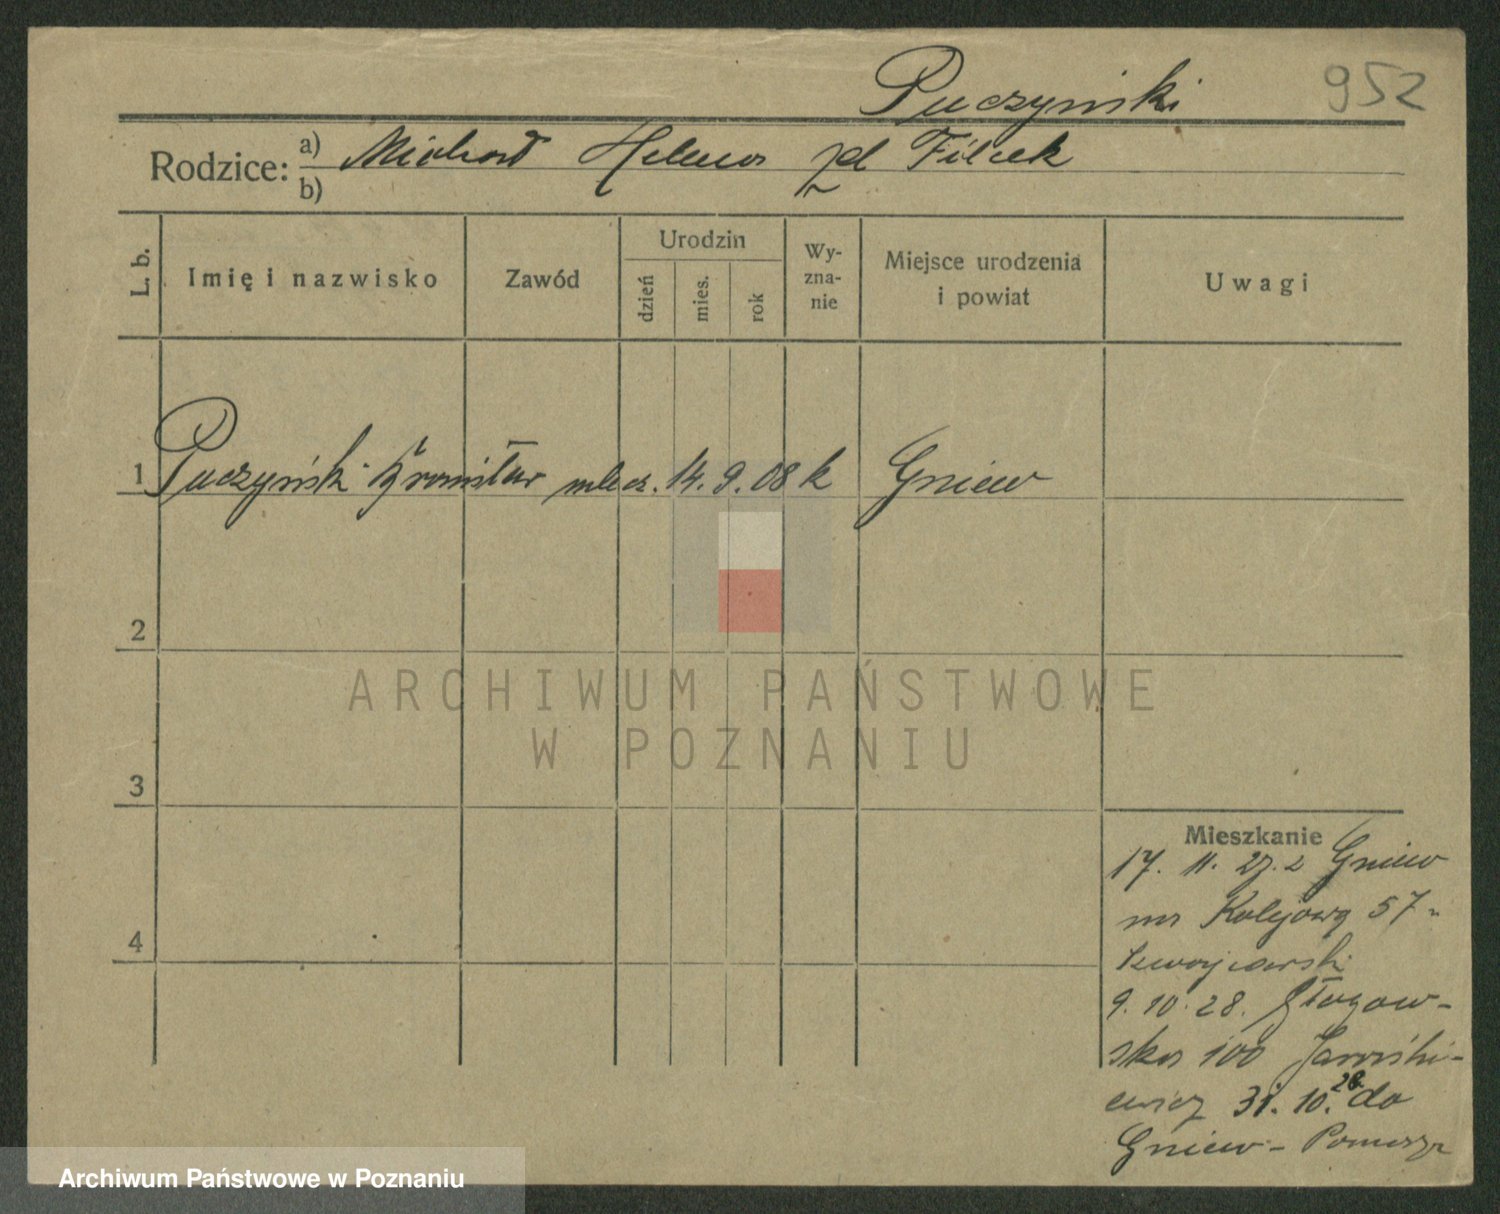 Puczyński 952
Rodzice: a) Michał Helena zd Filcek
b)
L. b. Imię i nazwisko Zawód Urodzin dzień mies. rok Wy-zna-nie Miejsce urodzenia i powiat Uwagi
1 Puczyński Bronisław mlecz. 14. 9. 08 k Gniew
2
ARCHIWUM PAŃSTWOWE
W POZNANIU
3
Mieszkanie
17. 11. 27. z Gniew
na Kolejową 57
Szwojcarski
9. 10. 28. Głogow-
ska 100 Jaroński-
ewicz 31. 10. 28. do
Gniew - Pomorze
4
Archiwum Państwowe w Poznaniu